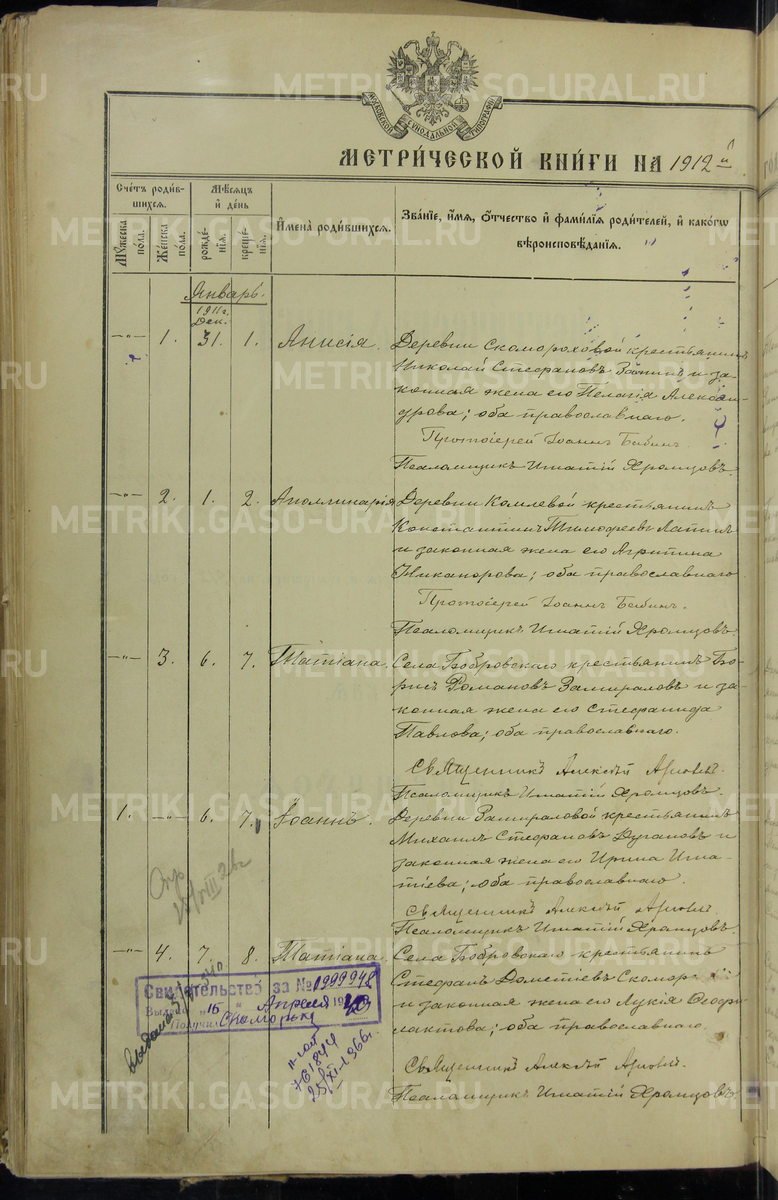 МОСКОВСКОЙ СѴНОДАЛЬНОЙ ТИПОГРАФІИ
МЕТРИ́ЧЕСКОЙ КНИ́ГИ НА 1912 й
Сче́тъ роди́вшихся.
Мѣ́сяцъ и҆ де́нь
И҆мена̀ роди́вшихся.
Зва́нїе, и҆́мя, ѻ҆́тчество и҆ фами́лїѧ роди́телей, и҆ како́гѡ вѣроисповѣ́данїѧ.
Му́жеска по́ла.
Же́нска по́ла.
рожде́нїѧ.
креще́нїѧ.
Январь.
1911 г.
Дек.
—"— 1. 31. 1. Анисія. Деревни Скомороховой крестьянинъ
Николай Стефановъ и за-
конная жена его Пелагія Алексан-
дрова; оба православнаго.
Протоіерей Іоаннъ Бабинъ.
Псаломщикъ Игнатій Хромцовъ.
—"— 2. 1. 2. Аполлинарія Деревни Комлевой крестьянинъ
Константинъ Тимофеевъ Лапинъ
и законная жена его Агрипина
Никанорова; оба православнаго
Протоіерей Іоаннъ Бабинъ.
Псаломщикъ Игнатій Хромцовъ
—"— 3. 6. 7. Татіана. Села Бобровскаго крестьянинъ Бо-
рисъ Романовъ Замираловъ и за-
конная жена его Стефанида
Павлова; оба православнаго.
Священникъ Алексій
Псаломщикъ Игнатій Хромцовъ.
1. —"— 6. 7. Іоаннъ. Деревни Замираловой крестьянинъ
Михаилъ Стефановъ Дугановъ и
законная жена его Ирина Игна-
тіева; оба православнаго.
Священникъ Алексій
Псаломщикъ Игнатій Хромцовъ.
—"— 4. 7. 8. Татіана. Села Бобровскаго крестьянинъ
Стефанъ Дометіевъ Скомор
и законная жена его Лукія Феофи-
лактова; оба православнаго.
Священникъ Алексій
Псаломщикъ Игнатій Хромцовъ
Свидетельство за № 1999948
Выдано „15 " Апреля 19
Получил
25/XI-1966г.
METRIKI.GASO-URAL.RU